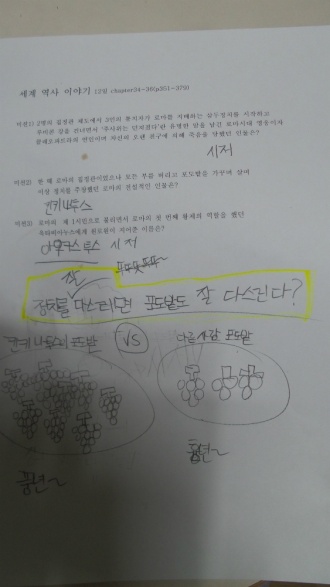 세계 역사 이야기 (2월 chapter34~36(p351~379)
미션1) 2명의 집정관 제도에서 3인의 통치자가 로마를 지배하는 삼두정치를 시작하고
루비콘 강을 건너면서 '주사위는 던져졌다'란 유명한 말을 남긴 로마시대 영웅이자
클레오파트라의 연인이며 자신의 오랜 친구에 의해 죽음을 당했던 인물은?
시저
미션2) 한 때 로마의 집정관이었으나 모든 부를 버리고 포도밭을 가꾸며 살며
이상 정치를 추구했던 로마의 전설적인 인물은?
킨키나투스
미션3) 로마의 제 1시민으로 불리면서 로마의 첫 번째 황제의 역할을 했던
옥타비아누스에게 원로원이 지어준 이름은?
아우구스투스 시저
잘
정치를 다스리면 포도밭도 잘 다스린다?
킨키나투스의 포도밭 VS 다른사람 포도밭
풍년~ 흉년~